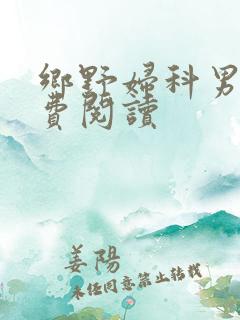 鄉野婦科男
費閱讀
姜陽
未任同意禁止轉載